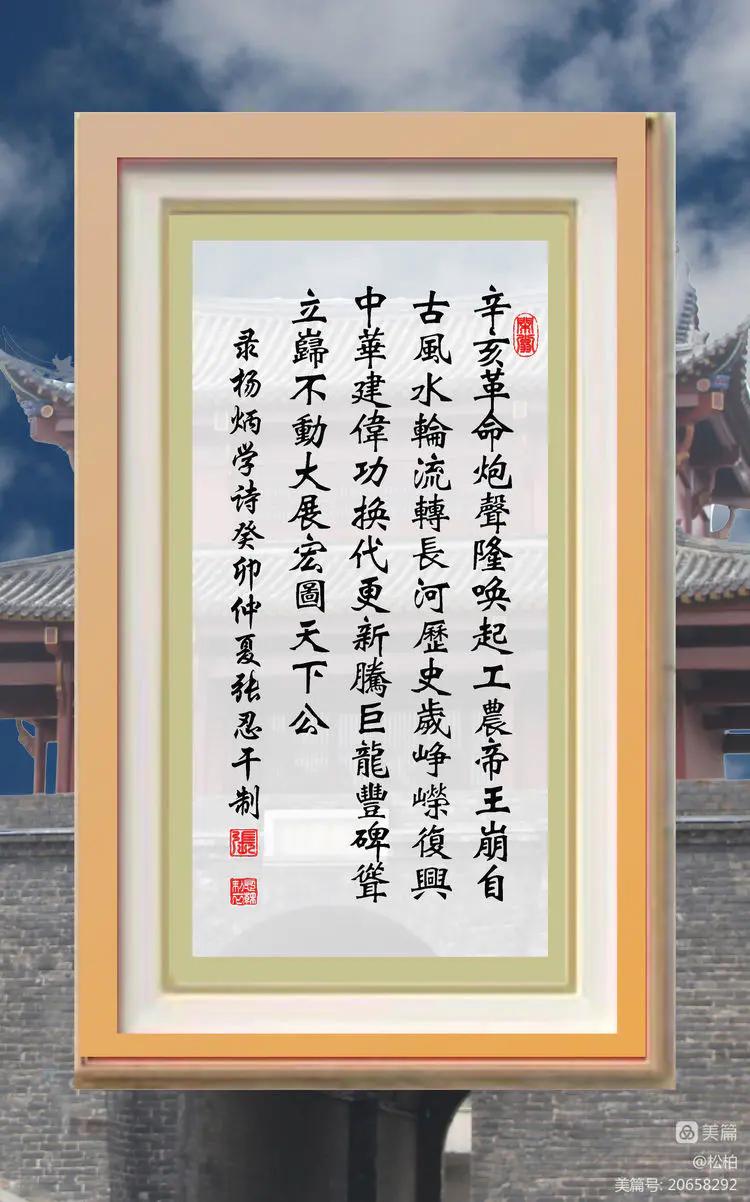 辛亥革命炮聲隆唤起工農帝王崩自
古風水輪流轉長河歷史歲峥嶸復興
中華建偉功换代更新騰巨龍豐碑聳
立巋不動大展宏圖天下公
录杨炳学诗癸卯仲夏张忍干制
美篇
@松柏
美篇号: 20658292